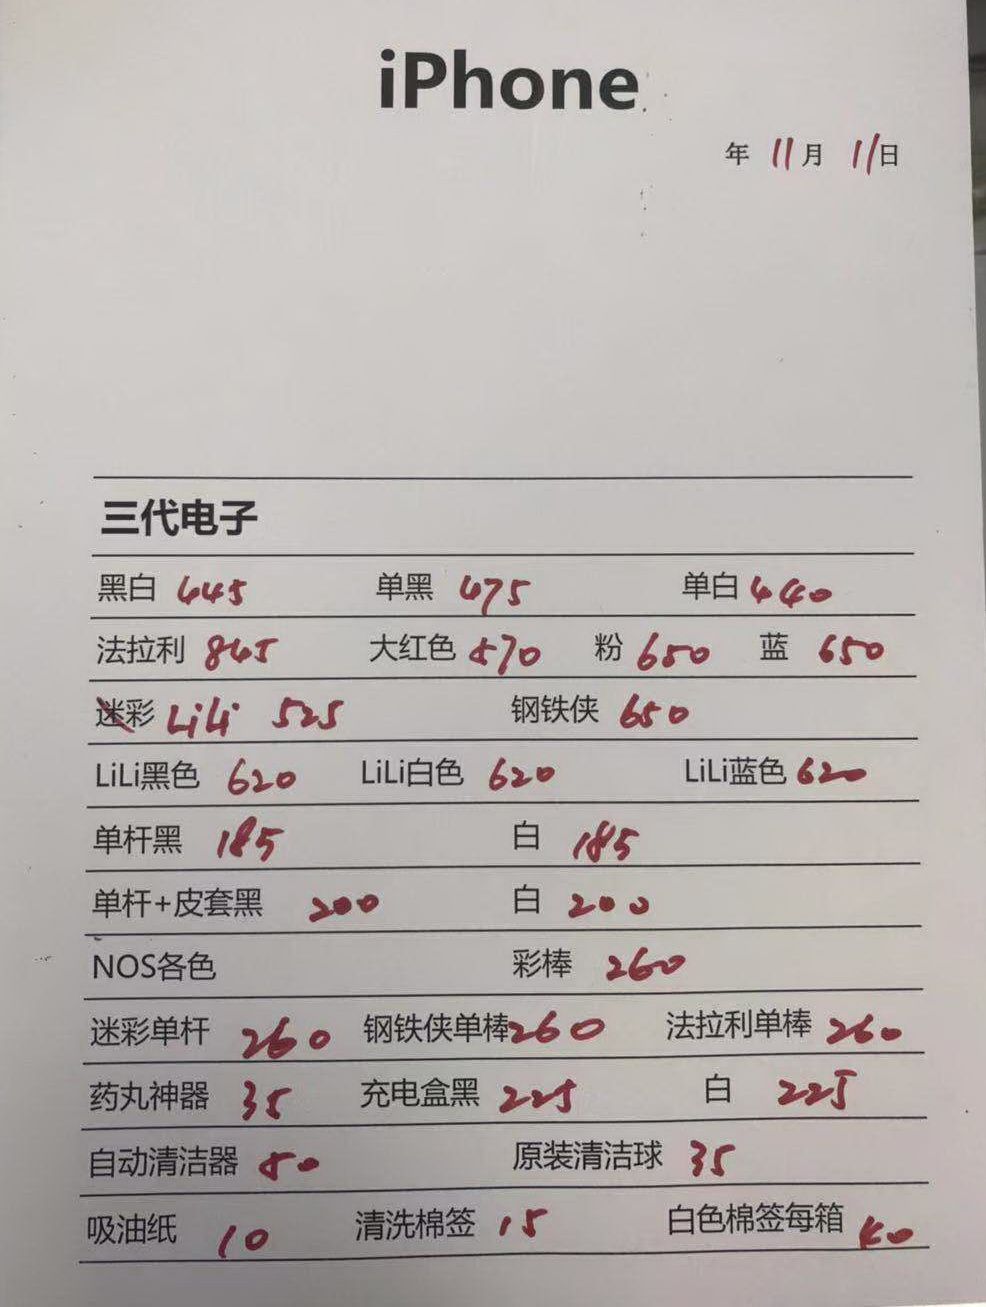 iPhone
年 11月 11日
三代电子
黑白 445 单黑 475 单白 440
法拉利 845 大红色 570 粉 650 蓝 650
迷彩 LiLi 525 钢铁侠 650
LiLi黑色 620 LiLi白色 620 LiLi蓝色 620
单杆黑 185 白 185
单杆+皮套黑 200 白 200
NOS各色 彩棒 260
迷彩单杆 260 钢铁侠单棒 260 法拉利单棒 260
药丸神器 35 充电盒黑 225 白 225
自动清洁器 50 原装清洁球 35
吸油纸 10 清洗棉签 15 白色棉签每箱